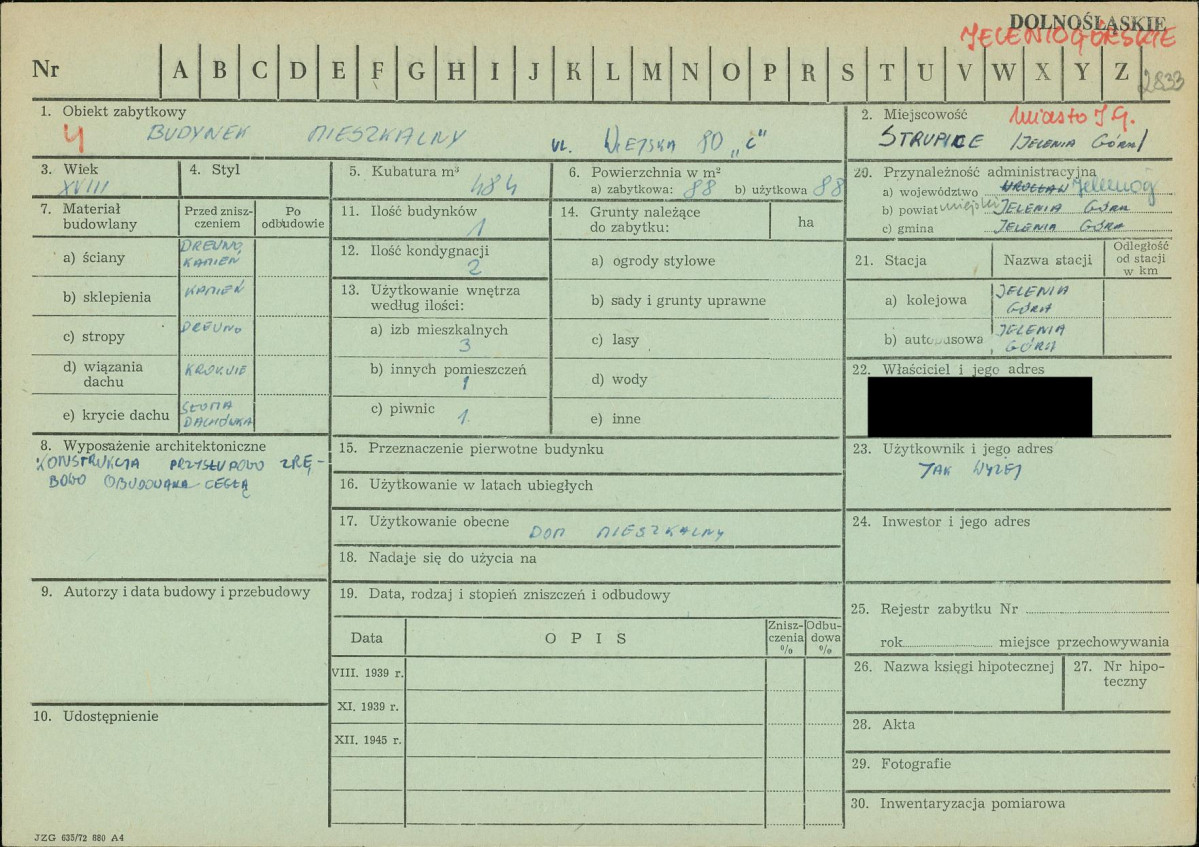 DOLNOŚLĄSKIE
JELENIOGÓRSKIE
Nr A B C D E F G H I J K L M N O P R S T U V W X Y Z 2833
1. Obiekt zabytkowy
4 BUDYNEK MIESZKALNY UL. WIEJSKA 80 „C"
2. Miejscowość miasto J G.
STRUPICE /JELENIA GÓRA/
3. Wiek
XVIII
4. Styl
5. Kubatura m³
484
6. Powierzchnia w m²
a) zabytkowa: 88 b) użytkowa 88
20. Przynależność administracyjna
a) województwo WROCŁAW Jeleniog
b) powiat miejski JELENIA GÓRA
c) gmina JELENIA GÓRA
7. Materiał budowlany
Przed zniszczeniem
Po odbudowie
a) ściany DREWNO KAMIEŃ
b) sklepienia KAMIEŃ
c) stropy DREWNO
d) wiązania dachu KROKWIE
e) krycie dachu SŁOMA DACHÓWKA
11. Ilość budynków
1
12. Ilość kondygnacji
2
13. Użytkowanie wnętrza
według ilości:
a) izb mieszkalnych
3
b) innych pomieszczeń
1
c) piwnic
1.
14. Grunty należące
do zabytku:
ha
a) ogrody stylowe
b) sady i grunty uprawne
c) lasy
d) wody
e) inne
21. Stacja
Nazwa stacji
Odległość
od stacji
w km
a) kolejowa JELENIA GÓRA
b) autobusowa JELENIA GÓRA
22. Właściciel i jego adres
8. Wyposażenie architektoniczne
KONSTRUKCJA PRZYSŁUPOWO ZRĘ-
BOWO OBUDOWANA CEGŁĄ
15. Przeznaczenie pierwotne budynku
16. Użytkowanie w latach ubiegłych
17. Użytkowanie obecne
DOM MIESZKALNY
18. Nadaje się do użycia na
23. Użytkownik i jego adres
JAK WYŻEJ
24. Inwestor i jego adres
9. Autorzy i data budowy i przebudowy
19. Data, rodzaj i stopień zniszczeń i odbudowy
Data
OPIS
Zniszczenia
%
Odbudowa
%
VIII. 1939 r.
XI. 1939 r.
XII. 1945 r.
25. Rejestr zabytku Nr
rok miejsce przechowywania
26. Nazwa księgi hipotecznej
27. Nr hipoteczny
10. Udostępnienie
28. Akta
29. Fotografie
30. Inwentaryzacja pomiarowa
JZG 635/72 880 A4